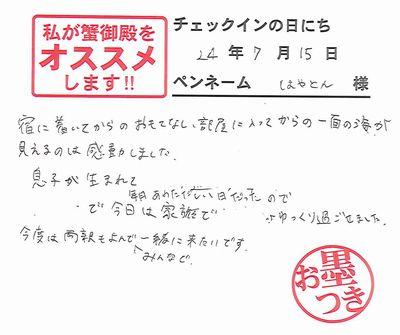 私が蟹御殿を
オススメ
します!!
チェックインの日にち
24年7月15日
ペンネーム はやとん 様
宿に着いてからのおもてなし、部屋に入ってからの一面の海が
見えるのは感動しました。
息子が生まれて
毎日あわただしい日だったので
で今日は家族で ゆっくり過ごせました。
今度は両親もよんで一緒に来たいです。
みんなで。
お墨つき